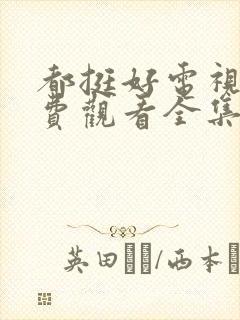 都挺好電視
費觀看全集
英田/西本